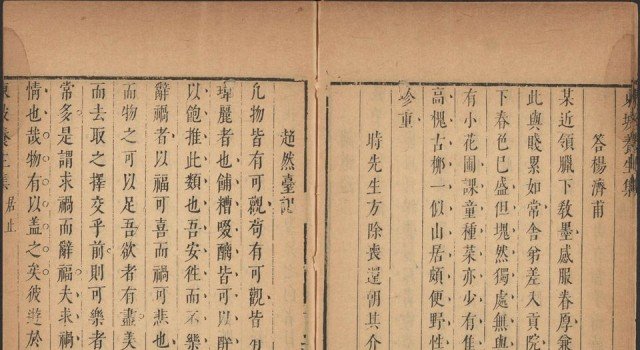 東坡養生集
答楊濟甫
某近領臘下教墨感服眷厚兼
此與賤累如常舍弟差入貢院
下春色已盛但塊然獨處無與
有小花圃課童種菜亦少有
高槐古柳一似山居頗便野性
珍重
時先生方除喪還朝其介
超然臺記
凡物皆有可觀苟有可觀皆有
瑋麗者也餔糟啜醨皆可以醉
以飽推此類也吾安往而不樂
辭禍者以福可喜而禍可悲也
而物之可以足吾欲者有盡美
而去取之擇交乎前則可樂者
常多是謂求禍而辭福夫求禍
情也哉物有以蓋之矣彼遊於
東坡養生集 居止